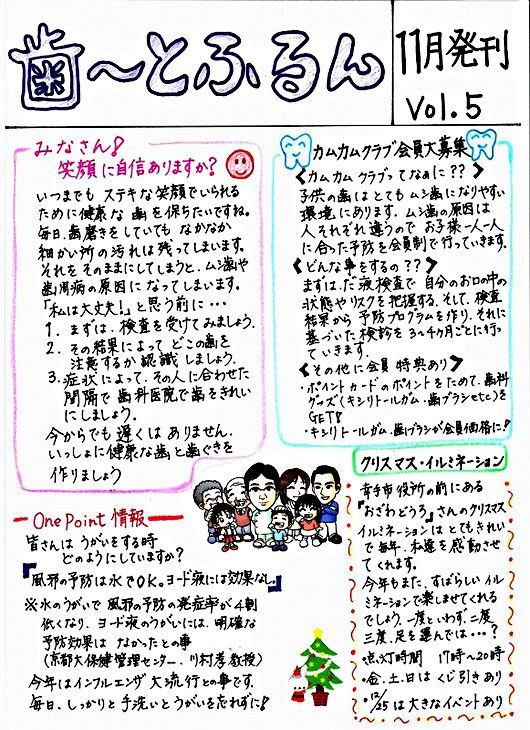 歯〜とふるん
11月発刊
Vol.5
みなさん!
笑顔に自信ありますか?
いつまでも ステキな笑顔でいられる
ために健康な 歯を保ちたいですね。
毎日、歯磨きをしていても なかなか
細かい所の汚れは残ってしまいます。
それを そのままにしてしまうと、ムシ歯や
歯周病の原因になってしまいます。
「私は大丈夫!」と思う前に・・・
1. まずは、検査を受けてみましょう。
2. その結果によって どこの歯を
注意するか認識しましょう。
3. 症状によって、その人に合わせた
間隔で歯科医院で歯をきれい
にしましょう。
今からでも遅くはありません。
いっしょに健康な歯と歯ぐきを
作りましょう
カムカムクラブ会員大募集
<カムカムクラブってなぁに??>
子供の歯はとてもムシ歯になりやすい
環境にあります。ムシ歯の原因は
人それぞれ違うので お子様一人一人
に合った予防を会員制で行っていきます。
<どんな事をするの??>
まずは、だ液検査で自分のお口の中の
状態やリスクを把握する。そして、検査
結果から 予防プログラムを作り、それに
基づいた検診を 3〜4ヶ月ごとに行っ
ていきます。
<その他に会員特典あり>
・ポイントカードのポイントをためて、歯科
グッズ(キシリトールガム・歯ブラシetc)を
GET!
・キシリトールガム、歯ブラシが会員価格に!
One Point 情報
皆さんは うがいをする時
どのようにしていますか?
『風邪の予防は水でOK。ヨード液には効果なし。』
※水のうがいで 風邪の予防の発症率が4割
低くなり、ヨード液のうがいには、明確な
予防効果は なかったとの事
(京都大保健管理センター、川村孝教授)
今年はインフルエンザ 大流行との事です。
毎日、しっかりと手洗いとうがいを忘れずに!
クリスマス・イルミネーション
幸手市役所の前にある
『おざわどうろ』さんのクリスマス
イルミネーションはとてもきれい
で毎年、私達を感動させ
てくれます。
今年もまた、すばらしい イル
ミネーションで楽しませてくれる
でしょう。一度といわず、二度、
三度、足を運んでは・・・?
点灯時間 17時〜20時
・金、土、日は くじ引きあり
・12/25は大きなイベントあり